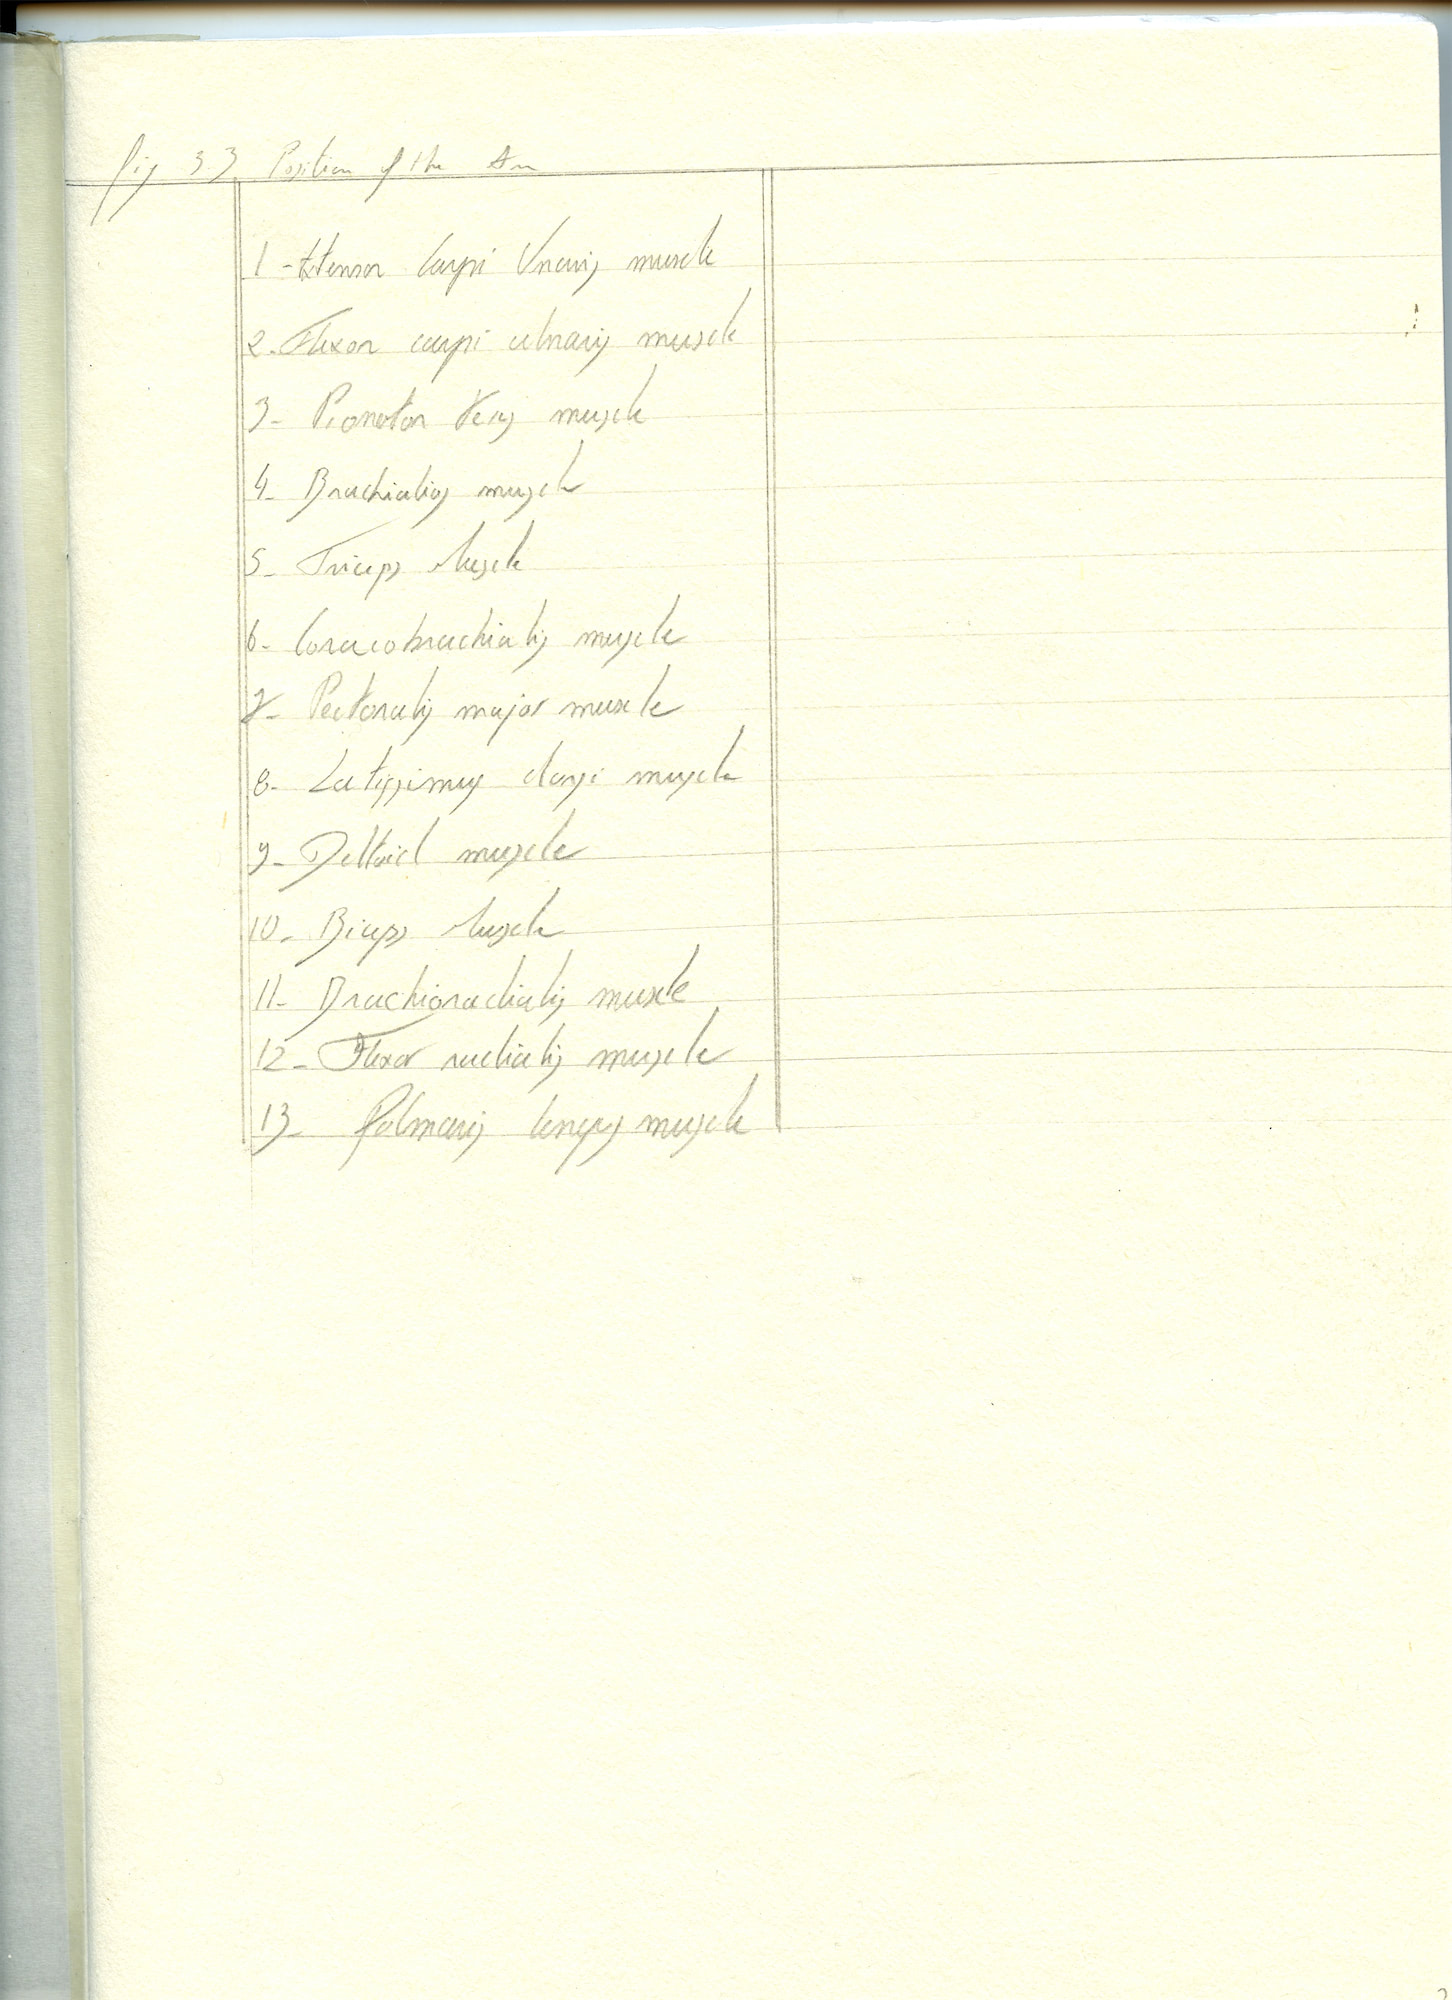 fig 3.3 Position of the Arm
1 - Extensor Carpi Unaris muscle
2. Flexor carpi ulnaris muscle
3- Pronator Teres muscle
4- Brachialis muscle
5- Triceps Muscle
6- Coracobrachialis muscle
7- Pectoralis major muscle
8- Latissimus dorsi muscle
9- Deltoid muscle
10- Biceps Muscle
11- Brachioradialis muscle
12- Flexor radialis muscle
13- Palmaris longus muscle